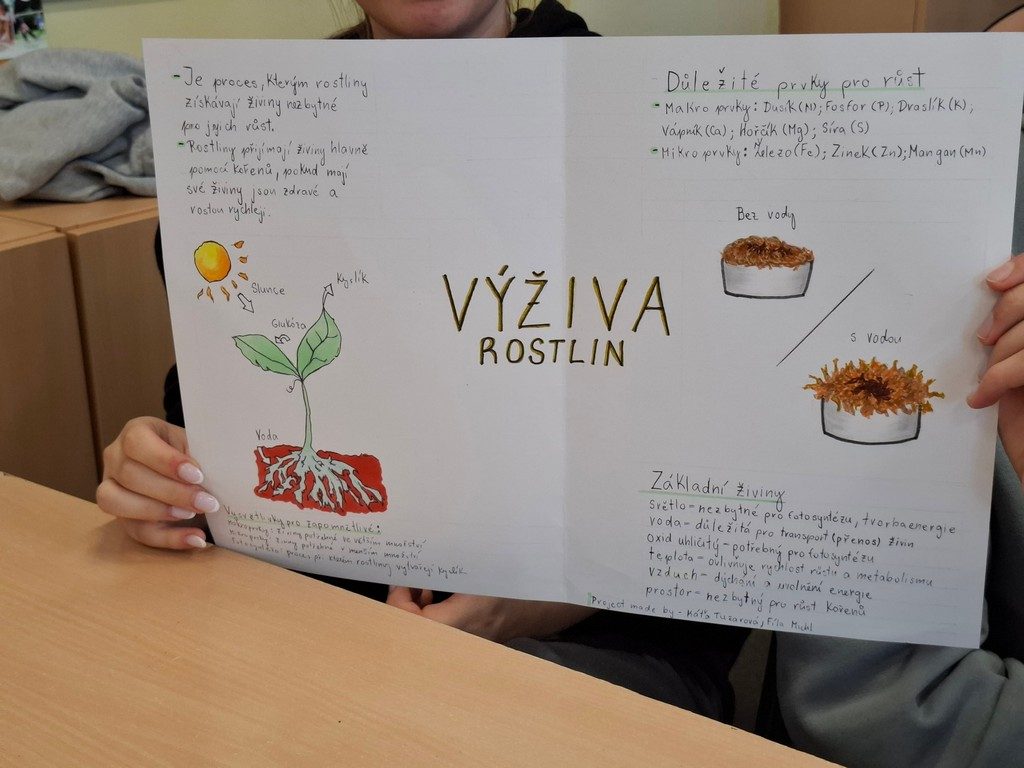 - Je proces, kterým rostliny
získávají živiny nezbytné
pro jejich růst.
- Rostliny přijímají živiny hlavně
pomocí kořenů, pokud mají
své živiny jsou zdravé a
rostou rychleji.
Slunce
Kyslík
Glukóza
Voda
Vysvětlivky pro zapomnětlivé:
Makroprvky = živiny potřebné ve větším množství
Mikroprvky = živiny potřebné v menším množství
Fotosyntéza = proces při kterém rostliny vytvářejí kyslík
VÝŽIVA
ROSTLIN
Důležité prvky pro růst
- Makro prvky: Dusík (N); Fosfor (P); Draslík (K);
Vápník (Ca); Hořčík (Mg); Síra (S)
- Mikro prvky: Železo (Fe); Zinek (Zn); Mangan (Mn)
Bez vody
s vodou
Základní živiny
Světlo - nezbytné pro fotosyntézu, tvorba energie
voda - důležitá pro transport (přenos) živin
oxid uhličitý - potřebný pro fotosyntézu
teplota - ovlivňuje rychlost růstu a metabolismu
vzduch - dýchání a uvolnění energie
prostor - nezbytný pro růst kořenů
Project made by - Káťa Tužarová, Fíla Michl